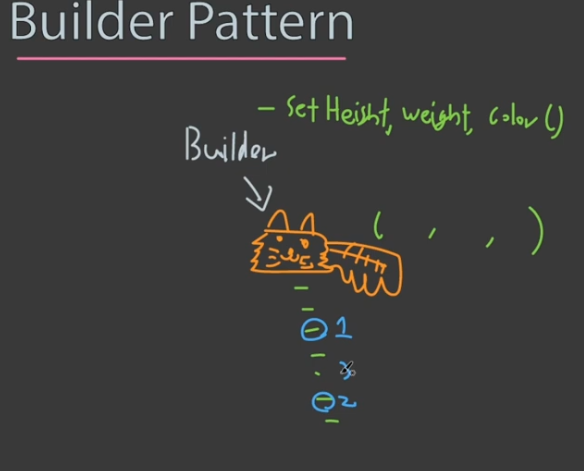 Builder Pattern
- Set Height, weight, color ()
Builder
( , , )
1
2